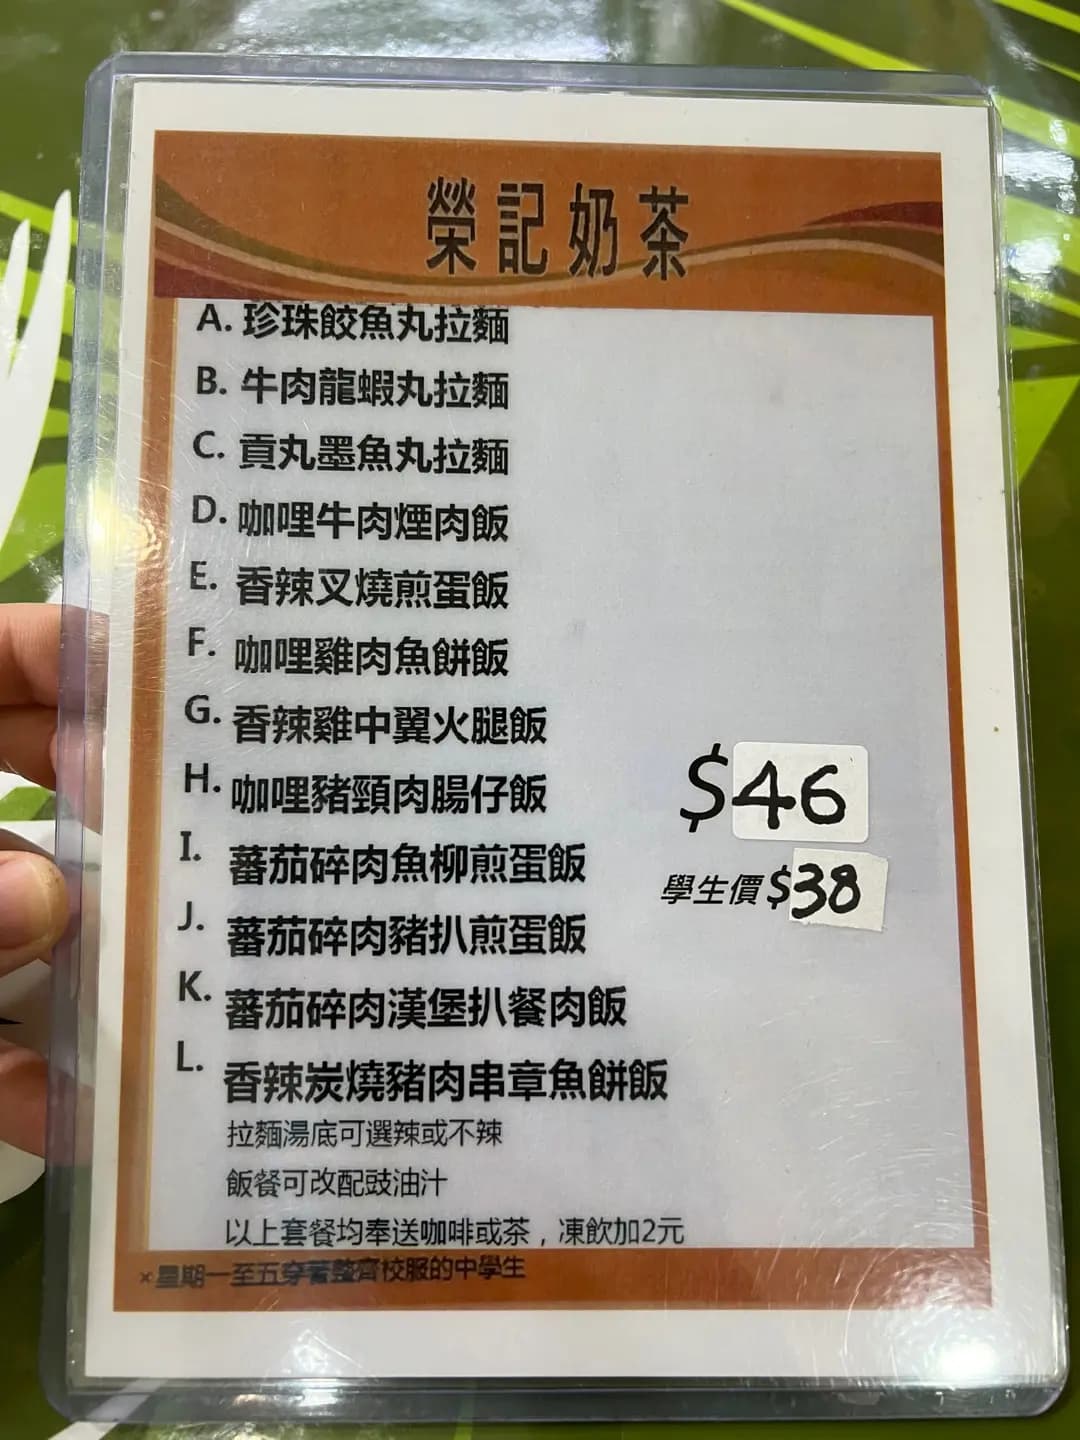 榮記奶茶
A. 珍珠餃魚丸拉麵
B. 牛肉龍蝦丸拉麵
C. 貢丸墨魚丸拉麵
D. 咖哩牛肉煙肉飯
E. 香辣叉燒煎蛋飯
F. 咖哩雞肉魚餅飯
G. 香辣雞中翼火腿飯
H. 咖哩豬頸肉腸仔飯
$46
I. 蕃茄碎肉魚柳煎蛋飯
學生價$38
J. 蕃茄碎肉豬扒煎蛋飯
K. 蕃茄碎肉漢堡扒餐肉飯
L. 香辣炭燒豬肉串章魚餅飯
拉麵湯底可選辣或不辣
飯餐可改配豉油汁
以上套餐均奉送咖啡或茶，凍飲加2元
×星期一至五穿著整齊校服的中學生